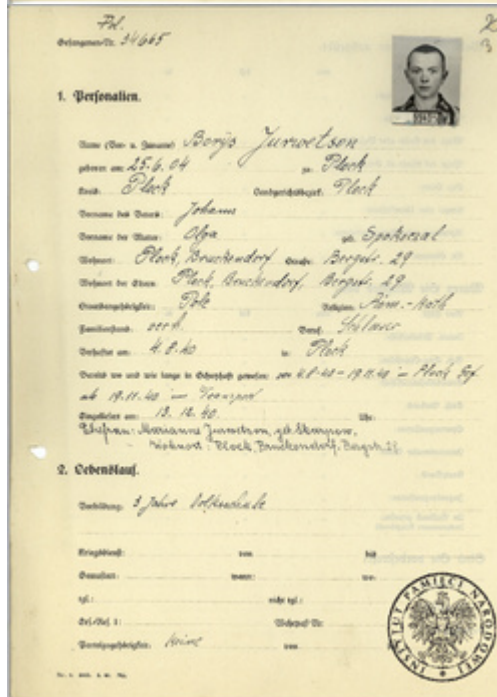 Pol.
Gefangenen-Nr. 34665
3
1. Personalien.
Name (Vor- u. Zuname) Borys Jurwetson
geboren am: 25.6.04 zu Plock
Kreis: Plock Landgerichtsbezirk: Plock
Vorname des Vaters: Johann
Vorname der Mutter: Olga geb.
Wohnort: Plock, Bruckendorf Straße: Bergstr. 29
Wohnort der Eltern: Plock, Bruckendorf, Bergstr. 29
Staatsangehörigkeit: Pole Religion: Röm.-kath
Familienstand: verh. Beruf:
Verhaftet am: 4.8.40 in: Plock
Bereits wo und wie lange in Schutzhaft gewesen: von 4.8.40 - 19.11.40 in Plock
ab 19.11.40 in Transport
Eingeliefert am: 13.12.40 Uhr:
Ehefrau: Marianne Jurwetson, geb.
Wohnort: Plock, Bruckendorf, Bergstr.
2. Lebenslauf.
Vorbildung: 3 Jahre Volksschule
Kriegsdienst: von bis
Gemustert: wann: wo:
tgl.: nicht tgl.:
Ers.-Res. I: Wehrpaß-Nr:
Parteizugehörigkeit: keine von
INSTYTUT PAMIĘCI NARODOWEJ